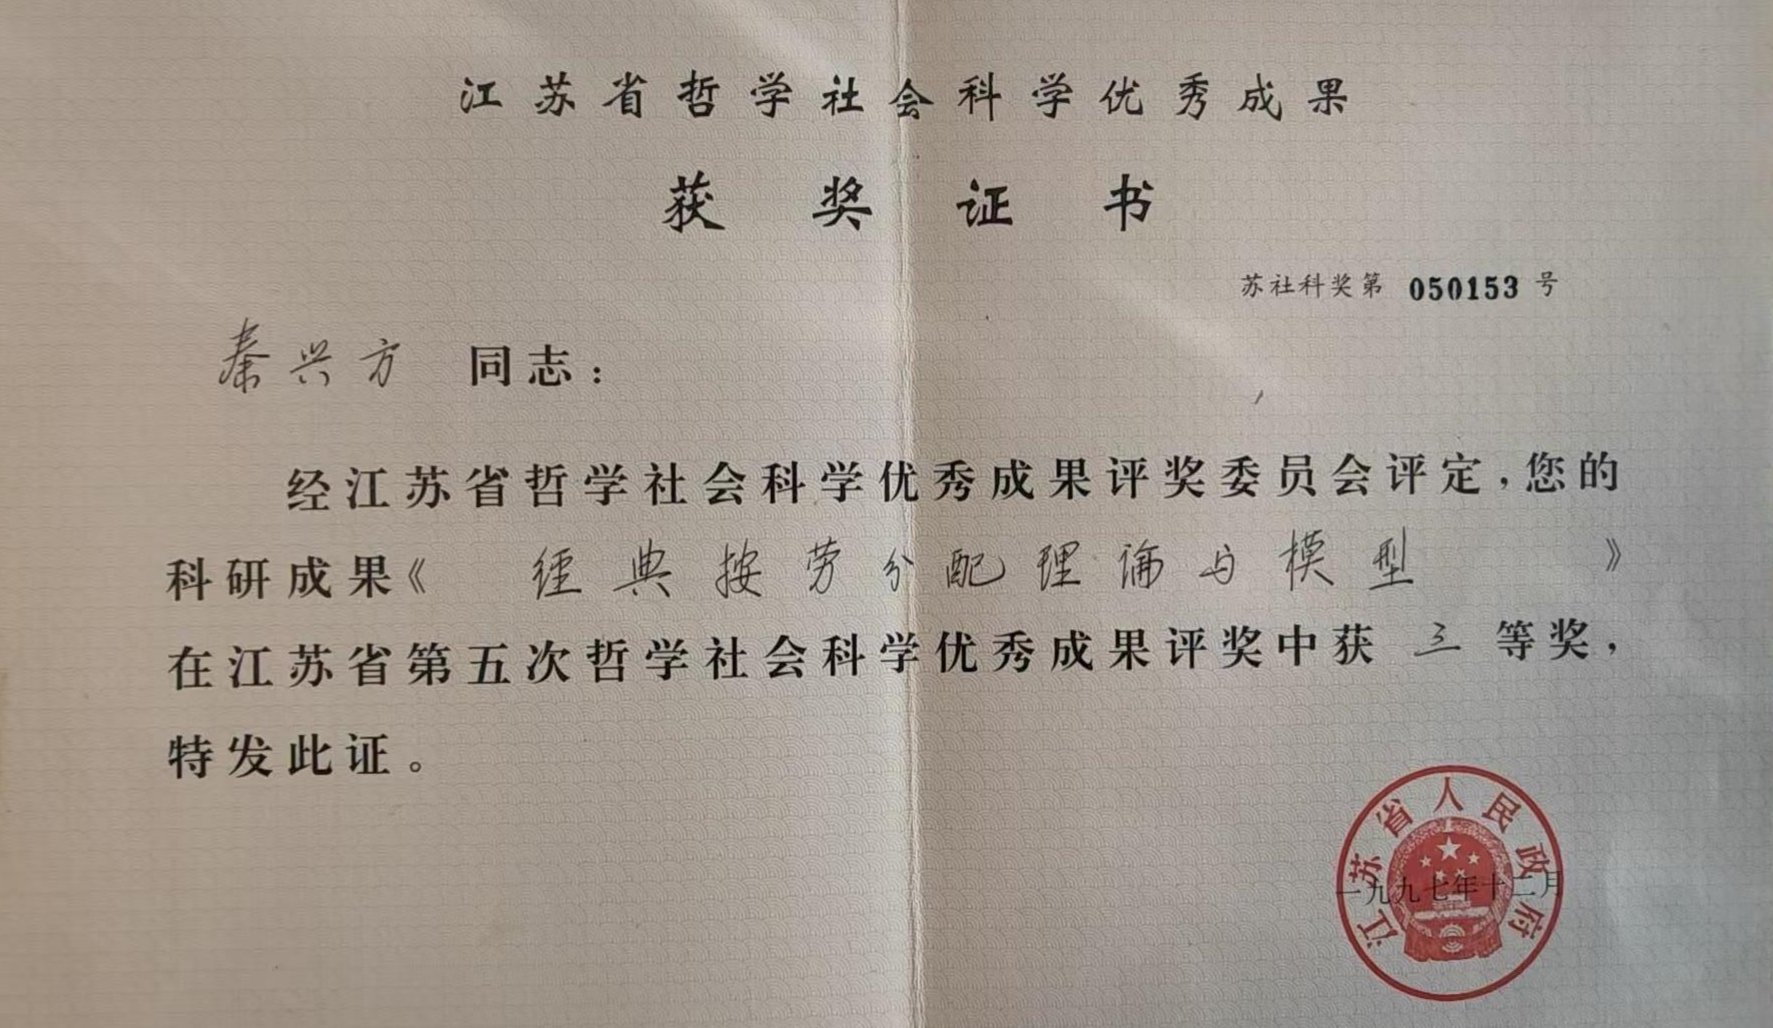 江苏省哲学社会科学优秀成果
获奖证书
苏社科奖第 050153 号
秦兴方 同志：
经江苏省哲学社会科学优秀成果评奖委员会评定，您的
科研成果《 经典按劳分配理论与模型 》
在江苏省第五次哲学社会科学优秀成果评奖中获 三 等奖，
特发此证。
江苏省人民政府
一九九七年十二月